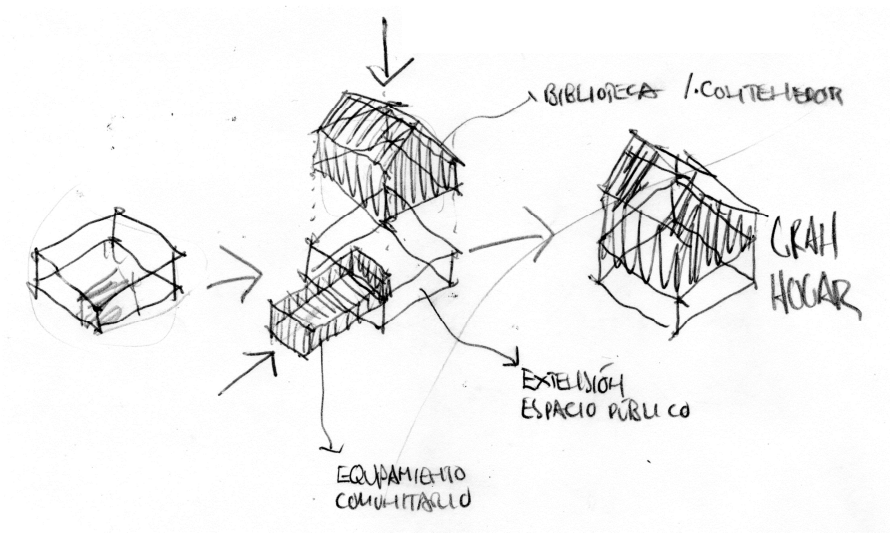 BIBLIOTECA /.CONTENEDOR
GRAN
HOGAR
EXTENSIÓN
ESPACIO PÚBLICO
EQUIPAMIENTO
COMUNITARIO